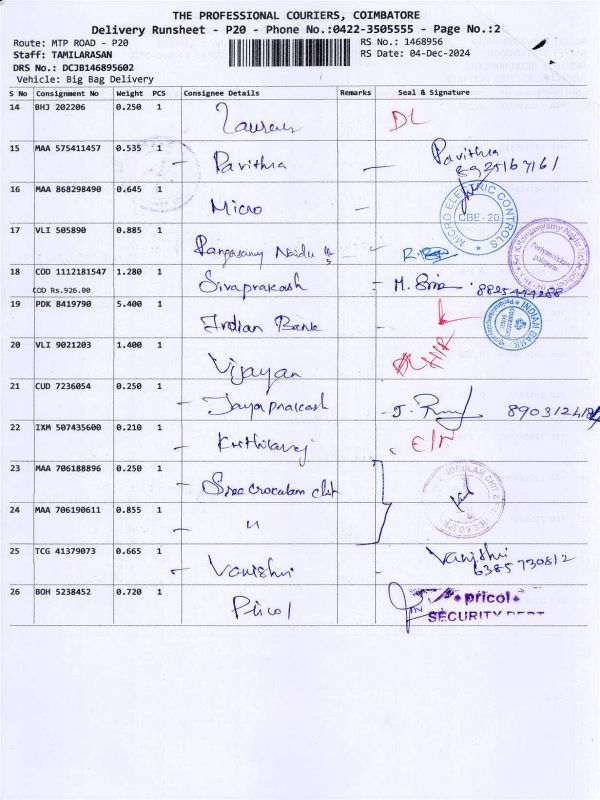 THE PROFESSIONAL COURIERS, COIMBATORE
Delivery Runsheet - P20 - Phone No.:0422-3505555 - Page No.:2
Route: MTP ROAD - P20 RS No.: 1468956
Staff: TAMILARASAN RS Date: 04-Dec-2024
DRS No.: DCJB146895602
Vehicle: Big Bag Delivery
S No Consignment No Weight PCS Consignee Details Remarks Seal & Signature
14 BHJ 202206 0.250 1 DL
15 MAA 575411457 0.535 1 Pavithra Pavithra
8925167161
16 MAA 868298490 0.645 1 Micro MICRO ELECTRIC CONTROLS CBE-20
17 VLI 505890 0.885 1 Rangasamy Naidu
18 COD 1112181547 1.280 1 Sivaprakash M. Siva
COD Rs.926.00
19 PDK 8419790 5.400 1 Indian Bank INDIAN BANK
20 VLI 9021203 1.400 1 Vijayan
21 CUD 7236054 0.250 1 Jayaprakash
22 IXM 507435600 0.210 1
23 MAA 706188896 0.250 1
24 MAA 706190611 0.855 1 "
25 TCG 41379073 0.665 1 Vanishri Vanishri
6385730812
26 BOH 5238452 0.720 1 Pricol pricol
SECURITY DEPT